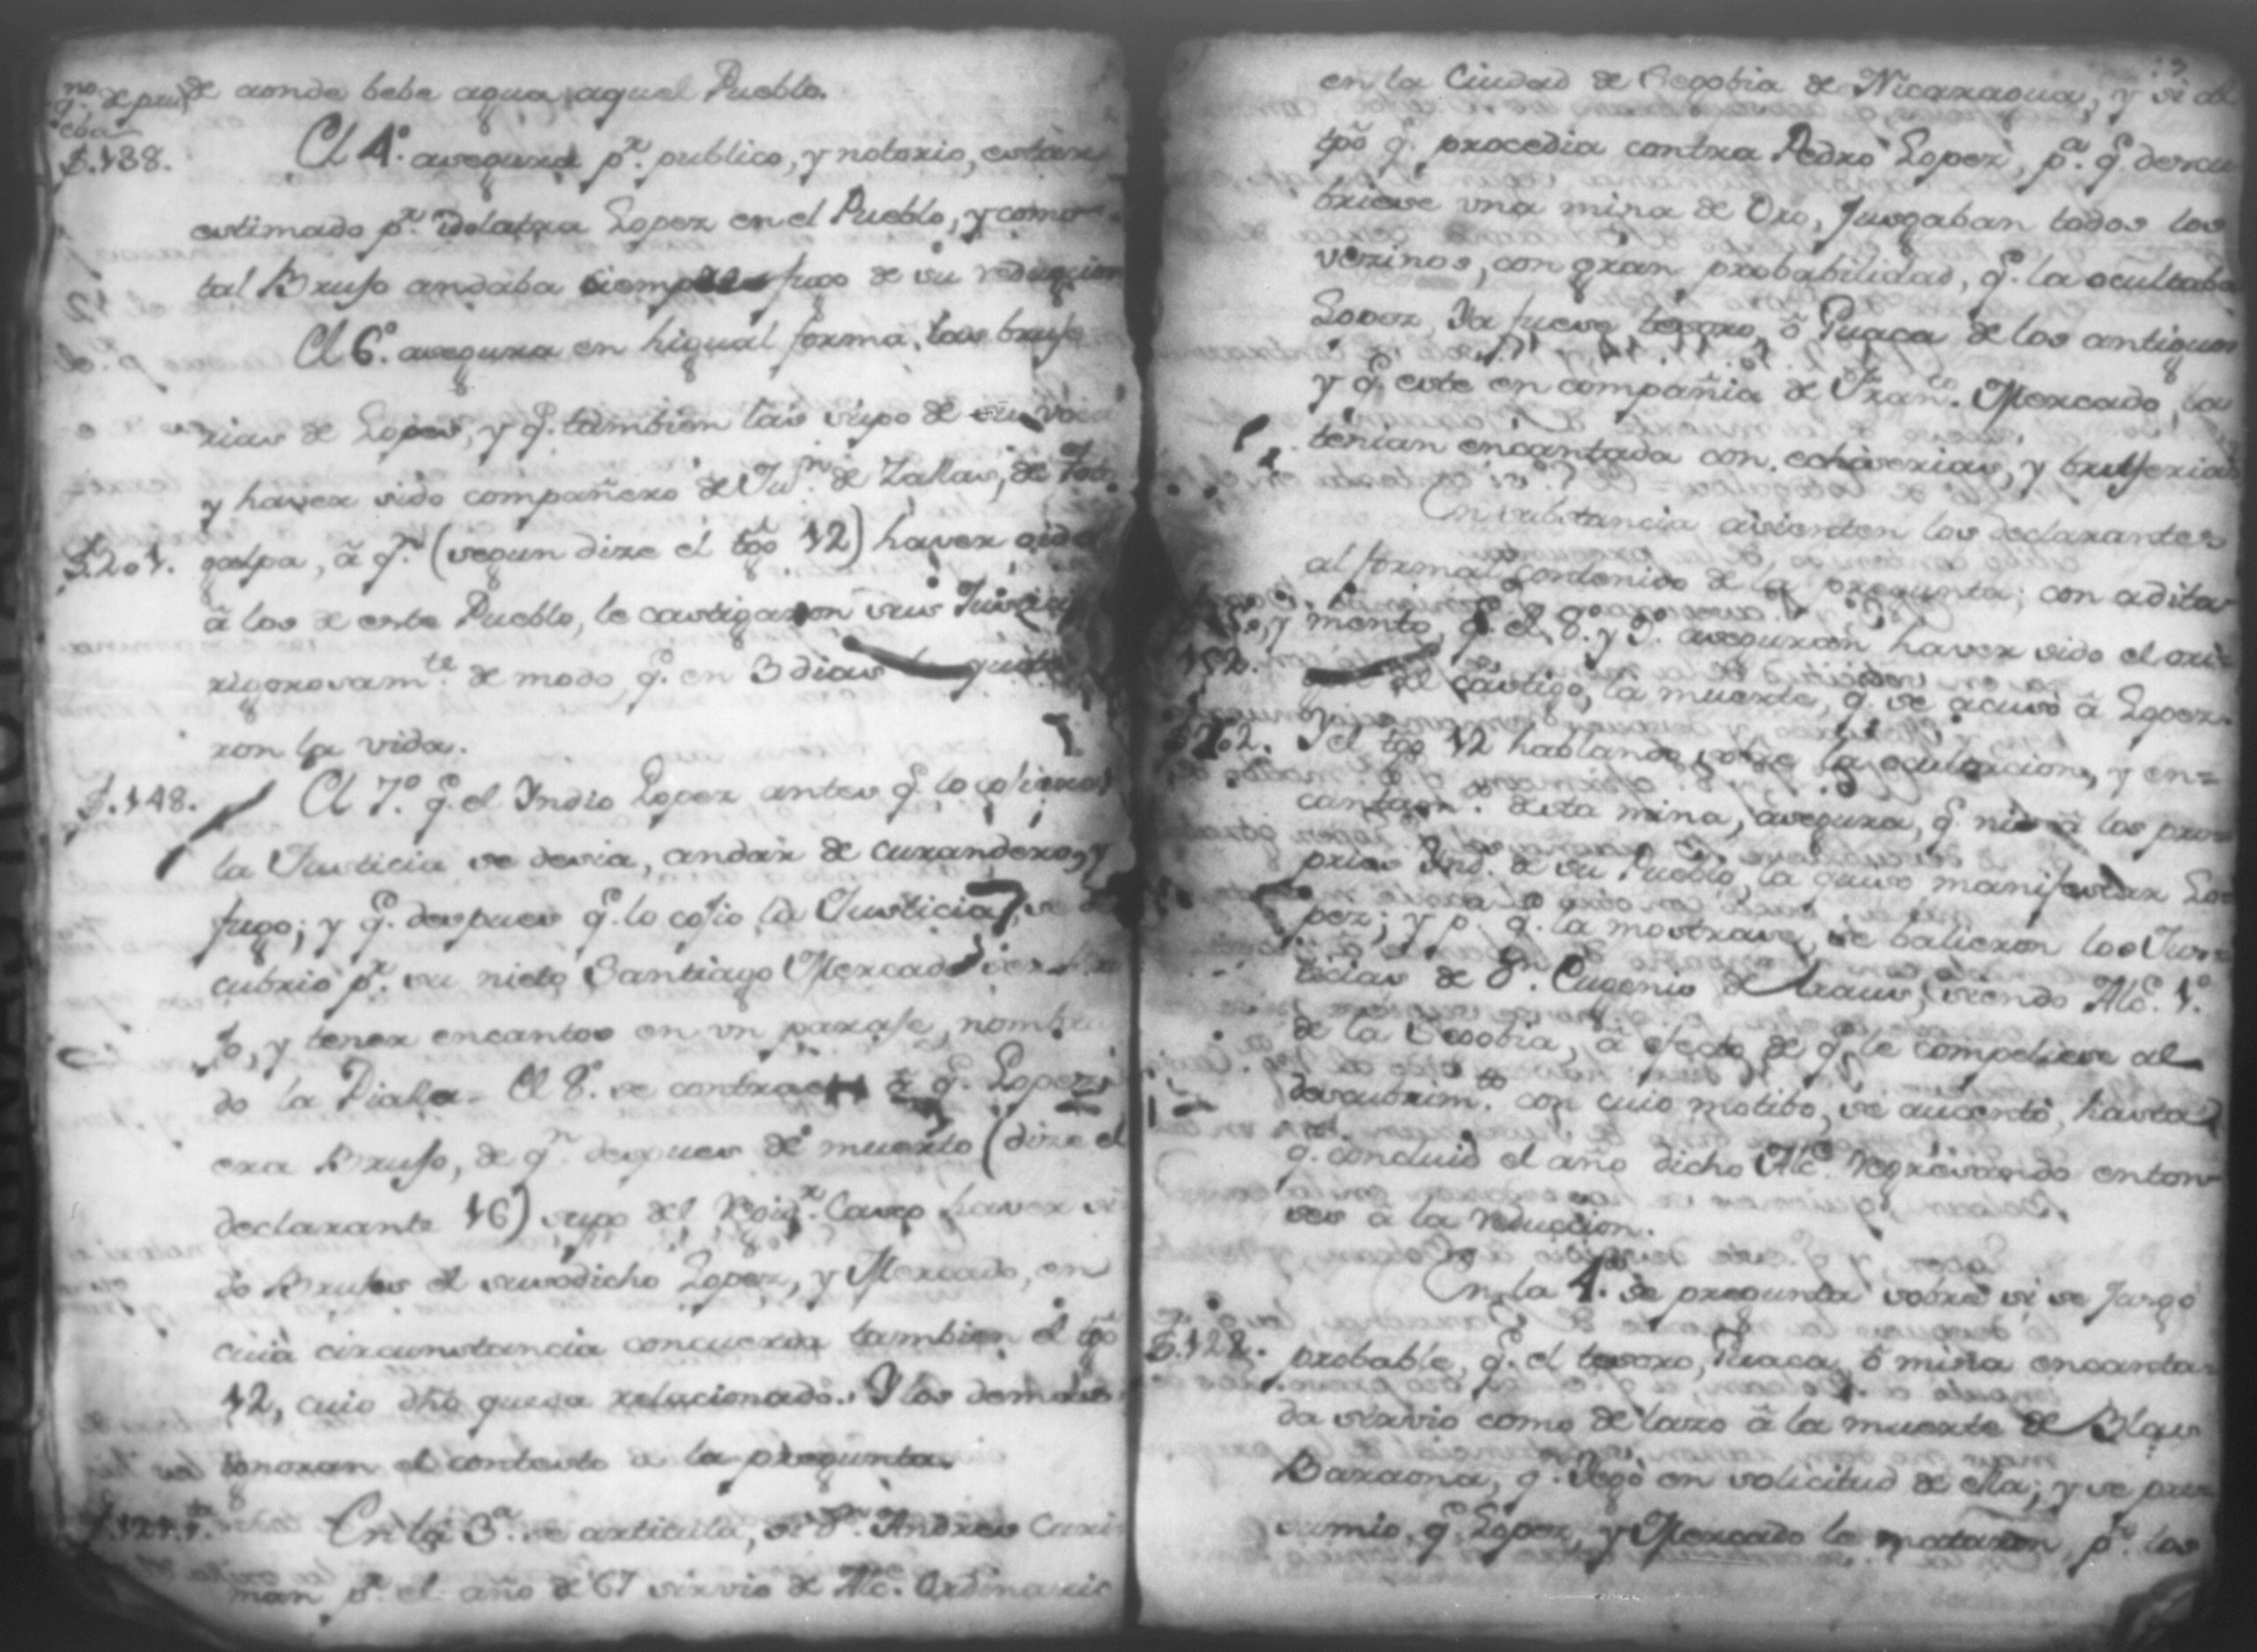 de donde bebe agua aquel Pueblo.
f. 138. El 4.º asegura p.r publico, y notorio, estar
estimado p.r idolatra Lopez en el Pueblo, y como
tal Brujo andaba siempre fugo de su reduccion
El 6.º asegura en higual forma, las bruje
rias de Lopez, y q.e tambien las supo de su
y haver sido compañero de Ju.n de Zallas, de Toto
f. 201. galpa, â q.n (segun dize el tgo 12) haver oido
â los de este Pueblo, le castigaron sus Justicias
rigorosam.te de modo, q.e en 3 dias le quita
ron la vida.
f. 148. El 7.º q.e el Indio Lopez antes q.e lo cojiera
la Justicia se decia, andar de curandero, y
fugo; y q.e despues q.e lo cojio la Justicia, se des
cubrio p.r su nieto Santiago Mercado ser Bru
jo, y tener encantos en vn paraje, nombra
do la Piaha. El 8.º se contrae â q.e Lopez
era Brujo, de q.n despues de muerto (dize el
declarante 16) supo del Regid.r Castro haver si
do Brujos el susodicho Lopez, y Mercado, en
cuia circunstancia concuerda tambien el tgo
12, cuio dho queda relacionado. Y los demas
ignoran el contesto de la pregunta.
f. 121. En la 3.a se articula, si d.n Andres Cari
man p.r el año de 67 sirvio de Alc.e Ordinario
en la Ciudad de Segobia de Nicaragua, y si al
tpõ q.e procedia contra Pedro Lopez, p.a q.e descu
briese vna mina de Oro, Jusgaban todos los
vezinos, con gran probabilidad, q.e la ocultaba
Lopez, Ya fuese tesoro, ô Guaca de los antiguos
y q.e este en compañia de Fran.co Mercado, la
tenian encantada con echiserias, y brujerias
En substancia asienten los declarantes
al formal contenido de la pregunta; con adita
mento, q.e el 8.º y 9.º aseguran haver sido el ori
gen del castigo, la muerte, q.e se acusó â Lopez.
f. 202. Y el tgo 12 hablando sobre la ocultacion, y en=
cantam.to desta mina, asegura, q.e ni â los pro
prios Ind.s de su Pueblo, la quiso manifestar Lo=
pez; y p.a q.e la mostrase, se balieron los Jus=
ticias de d.n Eugenio de Araus, siendo Alc.e 1.º
de la Segobia, â efecto de q.e le compeliese al
descubrim.to con cuio motibo, se aucentó, hasta
q.e concluió el año dicho Alc.e regresando enton
ses â la reduccion.
f. 128. En la 4.a se pregunta sobre si se Jusgó
probable, q.e el tesoro, Guaca, ô mina encanta=
da sirvio como de lazo â la muerte de Blas
Baraona, q.e llegó en solicitud de ella; y se pre
sumio, q.e Lopez, y Mercado le mataron, p.r los